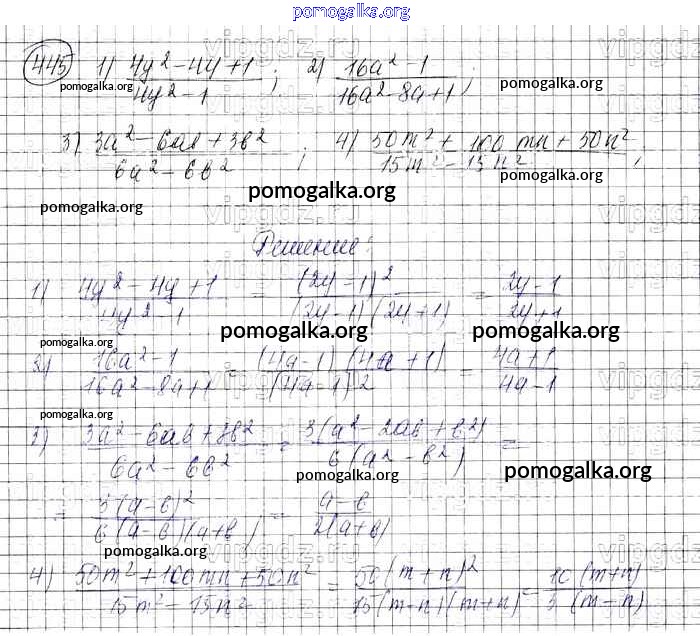 pomogalka.org
445 1) (4y² − 4y + 1)/(4y² − 1); 2) (16a² − 1)/(16a² − 8a + 1);
pomogalka.org pomogalka.org
3) (3a² − 6ab + 3b²)/(6a² − 6b²); 4) (50m² + 100mn + 50n²)/(15m² − 15n²);
pomogalka.org pomogalka.org pomogalka.org
Решение:
1) (4y² − 4y + 1)/(4y² − 1) = (2y − 1)²/((2y − 1)(2y + 1)) = (2y − 1)/(2y + 1)
pomogalka.org pomogalka.org pomogalka.org
2) (16a² − 1)/(16a² − 8a + 1) = ((4a − 1)(4a + 1))/(4a − 1)² = (4a + 1)/(4a − 1)
pomogalka.org
3) (3a² − 6ab + 3b²)/(6a² − 6b²) = 3(a² − 2ab + b²)/6(a² − b²) =
pomogalka.org pomogalka.org
= 3(a − b)²/(6(a − b)(a + b)) = (a − b)/2(a + b)
pomogalka.org
4) (50m² + 100mn + 50n²)/(15m² − 15n²) = 50(m + n)²/(15(m − n)(m + n)) = 10(m + n)/3(m − n)
vipgdz.ru